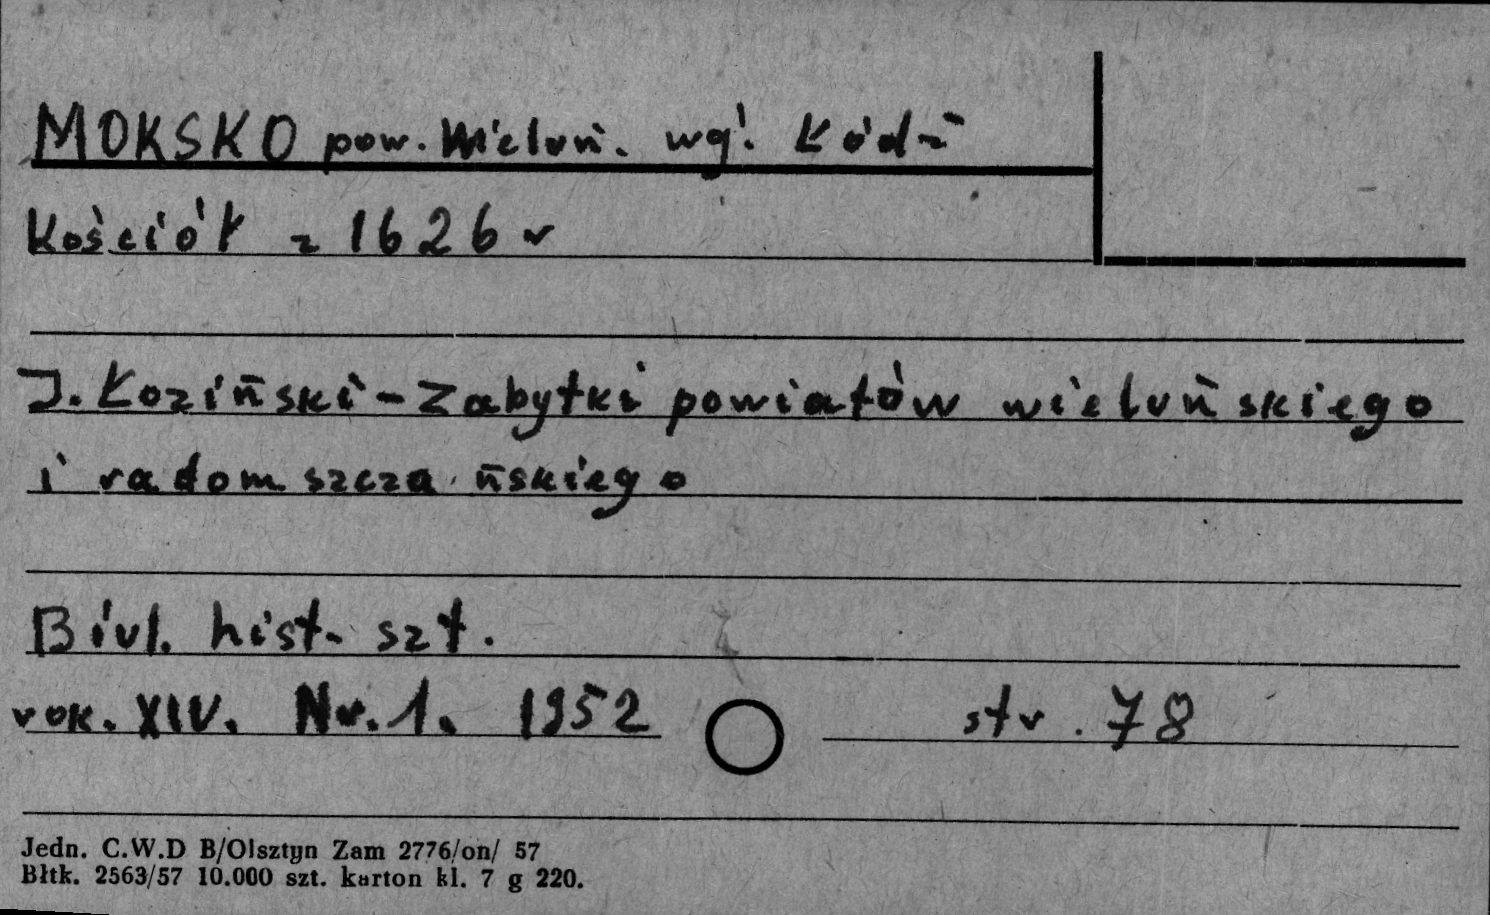 MOKSKO pow. Wieluń. wg. Łódź
Kościół z 1626 r
J. Łoziński - Zabytki powiatów wieluńskiego
i radomszczańskiego
Biul. hist. szt.
rok. XIV. Nr. 1. 1952 str. 78
Jedn. C.W.D B/Olsztyn Zam 2776/on/ 57
Błtk. 2563/57 10.000 szt. karton kl. 7 g 220.